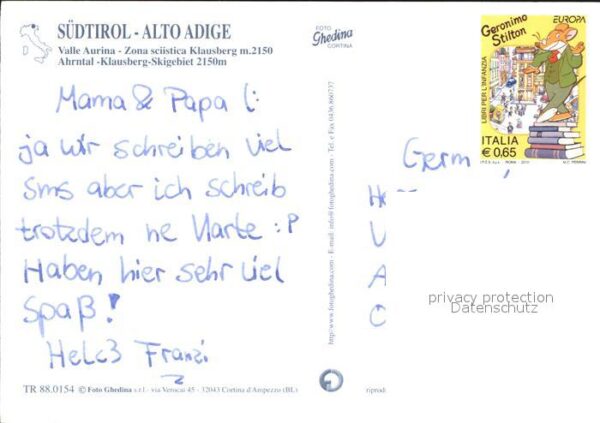 SÜDTIROL - ALTO ADIGE
Valle Aurina - Zona sciistica Klausberg m.2150
Ahrntal -Klausberg-Skigebiet 2150m
FOTO
Ghedina
CORTINA
Mama & Papa (:
ja wir schreiben viel
Sms aber ich schreib
trotzdem ne Karte :P
Haben hier sehr viel
Spaß!
Franzi
TR 88.0154 © Foto Ghedina s.r.l. - via Verocai 45 - 32043 Cortina d'Ampezzo (BL)
http://www.fotoghedina.com - E-mail: info@fotoghedina.com - Tel. e Fax 0436.860737
Geronimo
Stilton
EUROPA
LIBRI PER L'INFANZIA
ITALIA
€ 0,65
Germ
H
V
A
C
privacy protection
Datenschutz
riprod